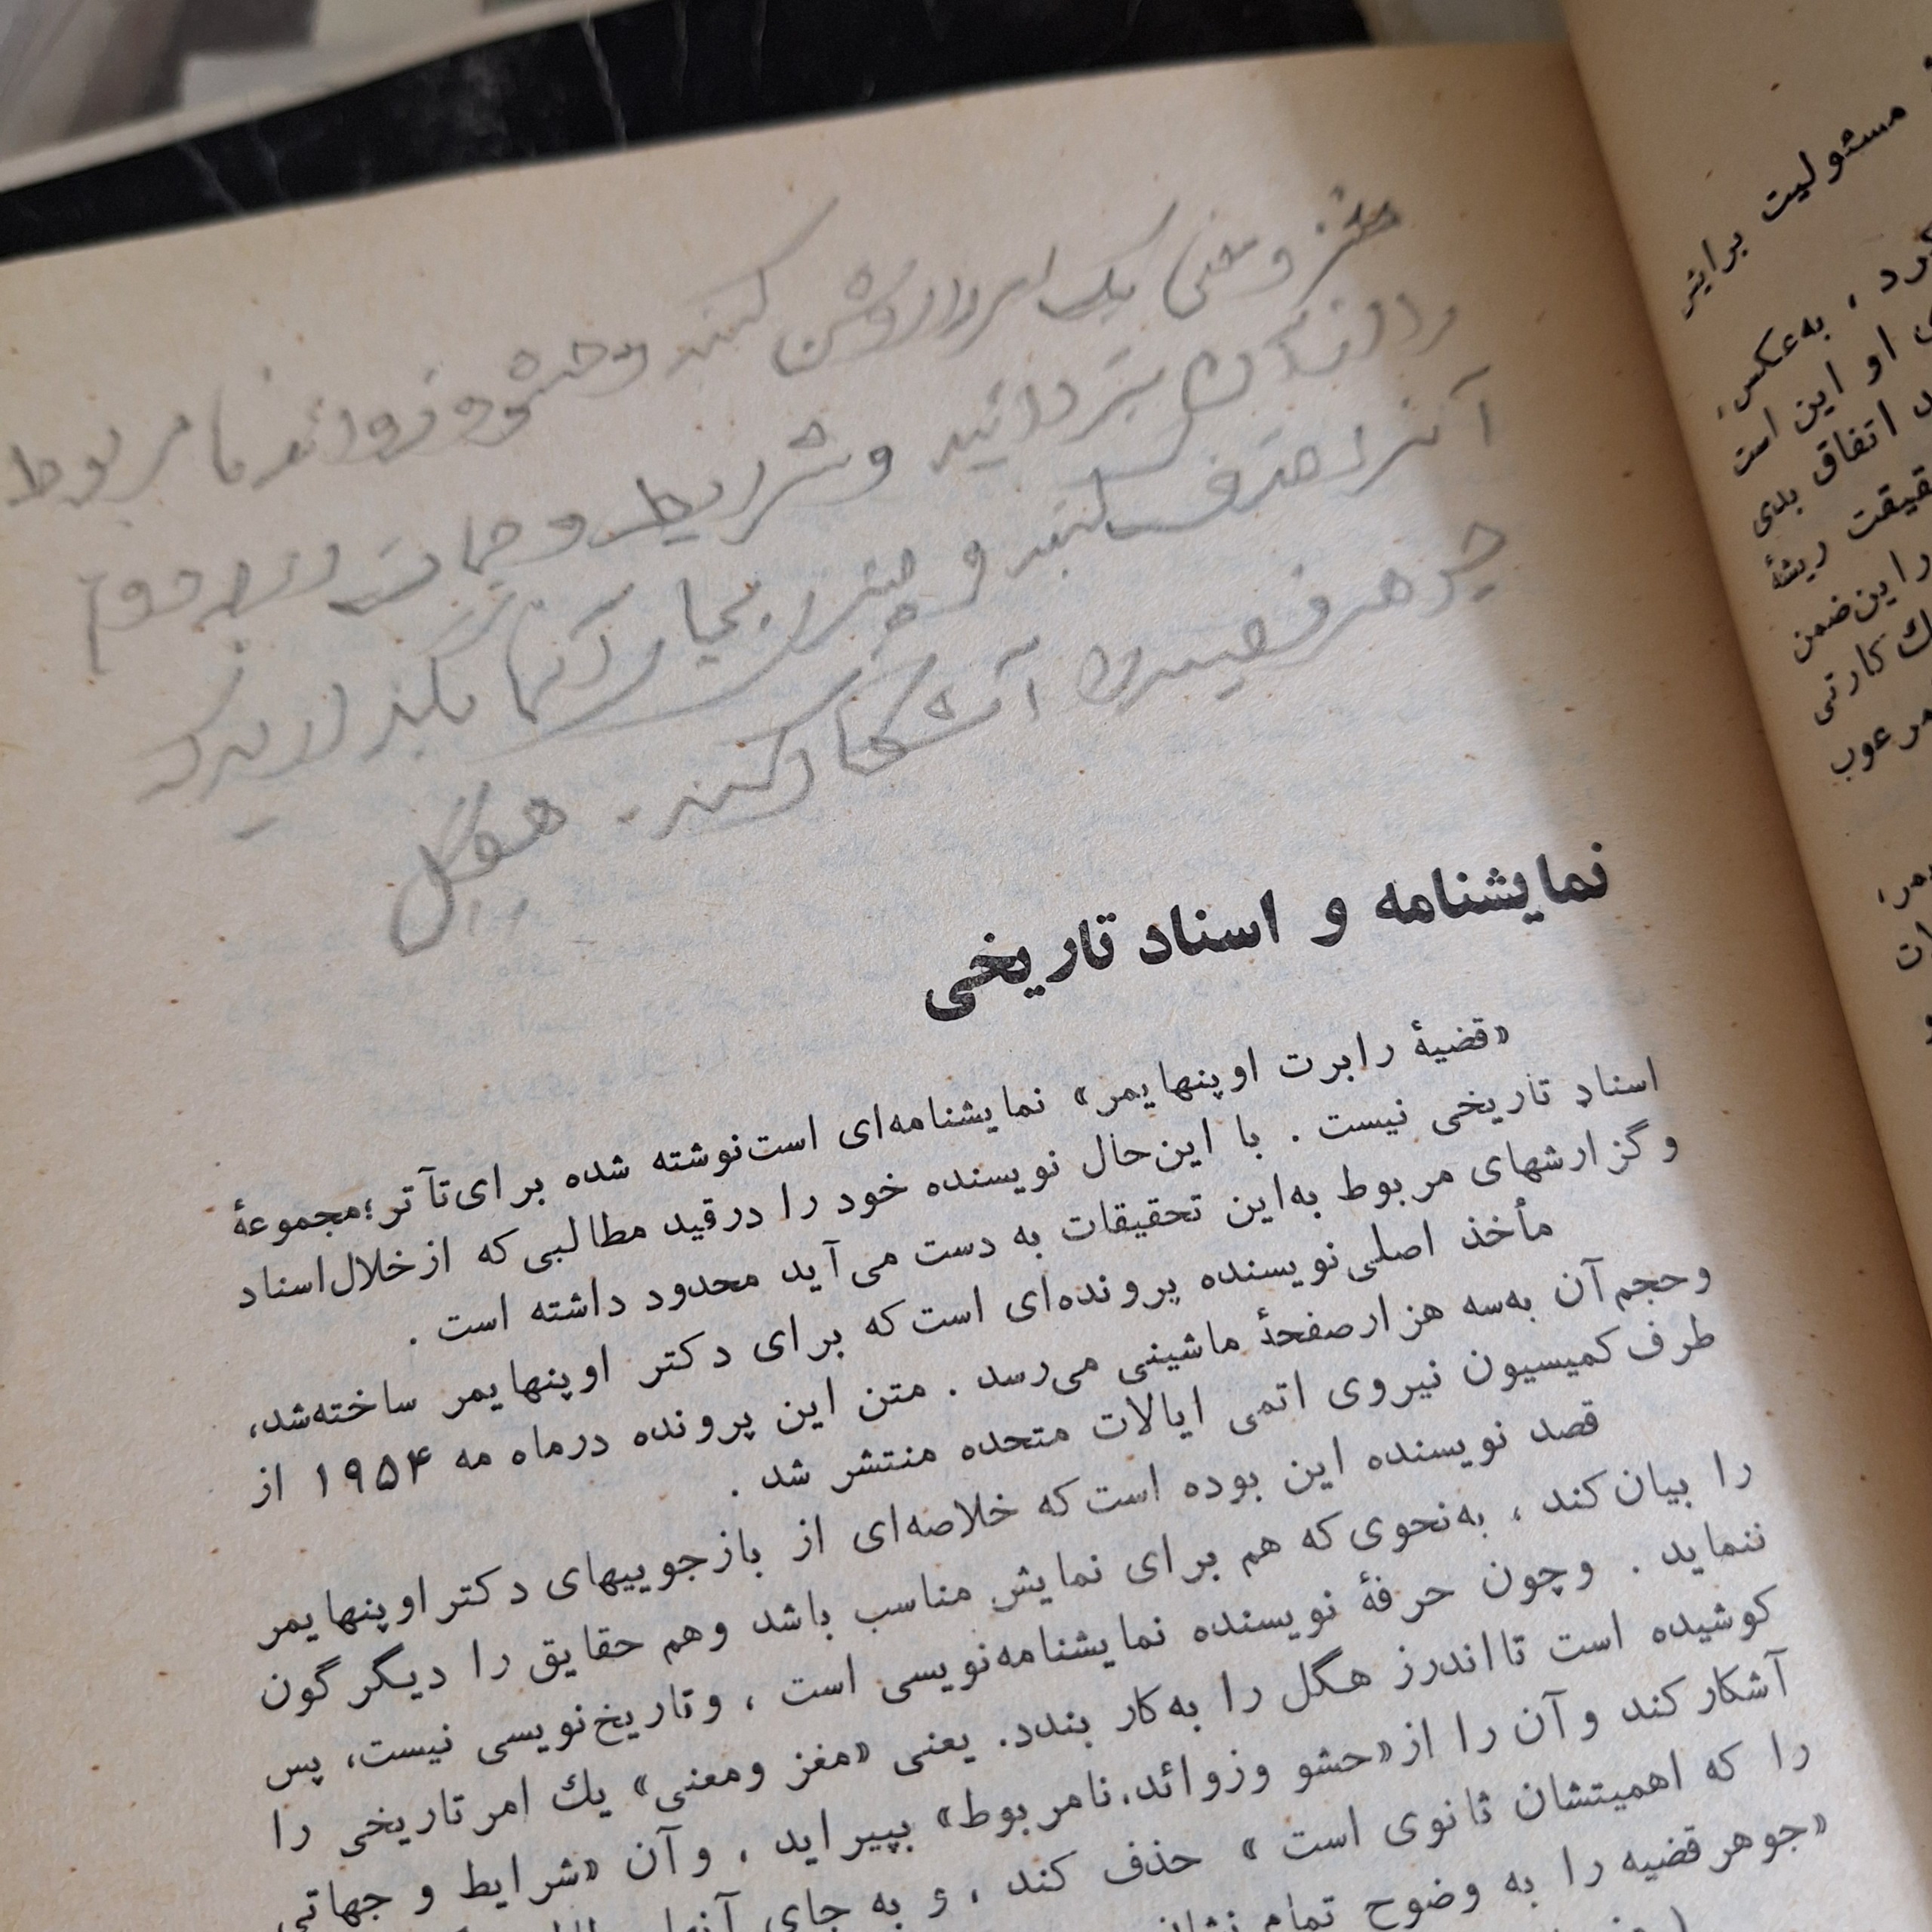 مغز و معنی یک امر را روشن کنند و حشو و زوائد نامربوط
را از آن بزدائید و شرایط و جهات درجه دوم
آنرا حذف کنید و چیزی بجای آنها بگذارید که
جوهر قضیه را آشکار کند. هگل
نمایشنامه و اسناد تاریخی
«قضیهٔ رابرت اوپنهایمر» نمایشنامه‌ای است نوشته شده برای تآتر؛ مجموعهٔ
اسناد تاریخی نیست . با این‌حال نویسنده خود را درقید مطالبی‌که ازخلال اسناد
و گزارشهای مربوط به‌این تحقیقات به دست می‌آید محدود داشته است .
مأخذ اصلی نویسنده پرونده‌ای است‌که برای دکتر اوپنهایمر ساخته‌شد،
وحجم آن به‌سه هزار صفحهٔ ماشینی می‌رسد . متن این پرونده درماه مه ۱۹۵۴ از
طرف کمیسیون نیروی اتمی ایالات متحده منتشر شد .
قصد نویسنده این بوده است‌که خلاصه‌ای از بازجوییهای دکتر اوپنهایمر
را بیان‌کند ، به‌نحوی‌که هم برای نمایش مناسب باشد وهم حقایق را دیگرگون
ننماید . وچون حرفهٔ نویسنده نمایشنامه‌نویسی است ، وتاریخ‌نویسی نیست، پس
کوشیده است تا اندرز هگل را به‌کار بندد. یعنی «مغز ومعنی» یك امر تاریخی را
آشکار کند و آن را از «حشو وزوائد نامربوط» بپیراید ، و آن «شرایط و جهاتی
را که اهمیتشان ثانوی است » حذف کند ، و به جای آنها
«جوهر قضیه را به وضوح تمام
مسئولیت برایش
کرد ، به‌عکس،
او این است
اتفاق بدی
ریشهٔ
را این‌ضمن
کارتی
مرعوب